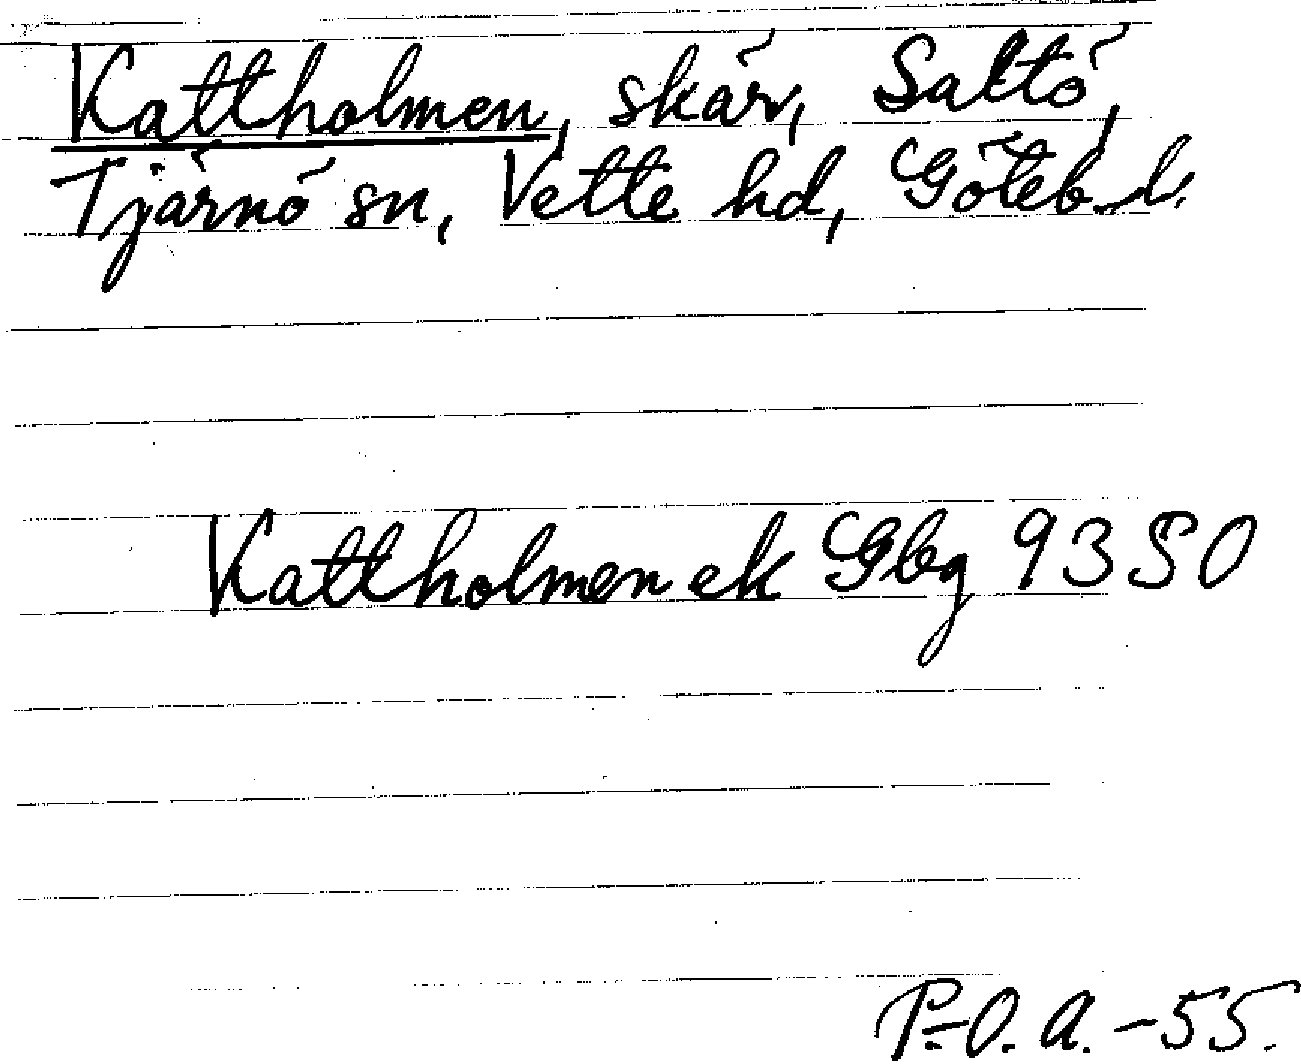 Kattholmen, skär, Saltö,
Tjärnö sn, Vette hd, Göteb. l.
Kattholmen ek Gbg 9350
P-O. A. -55.